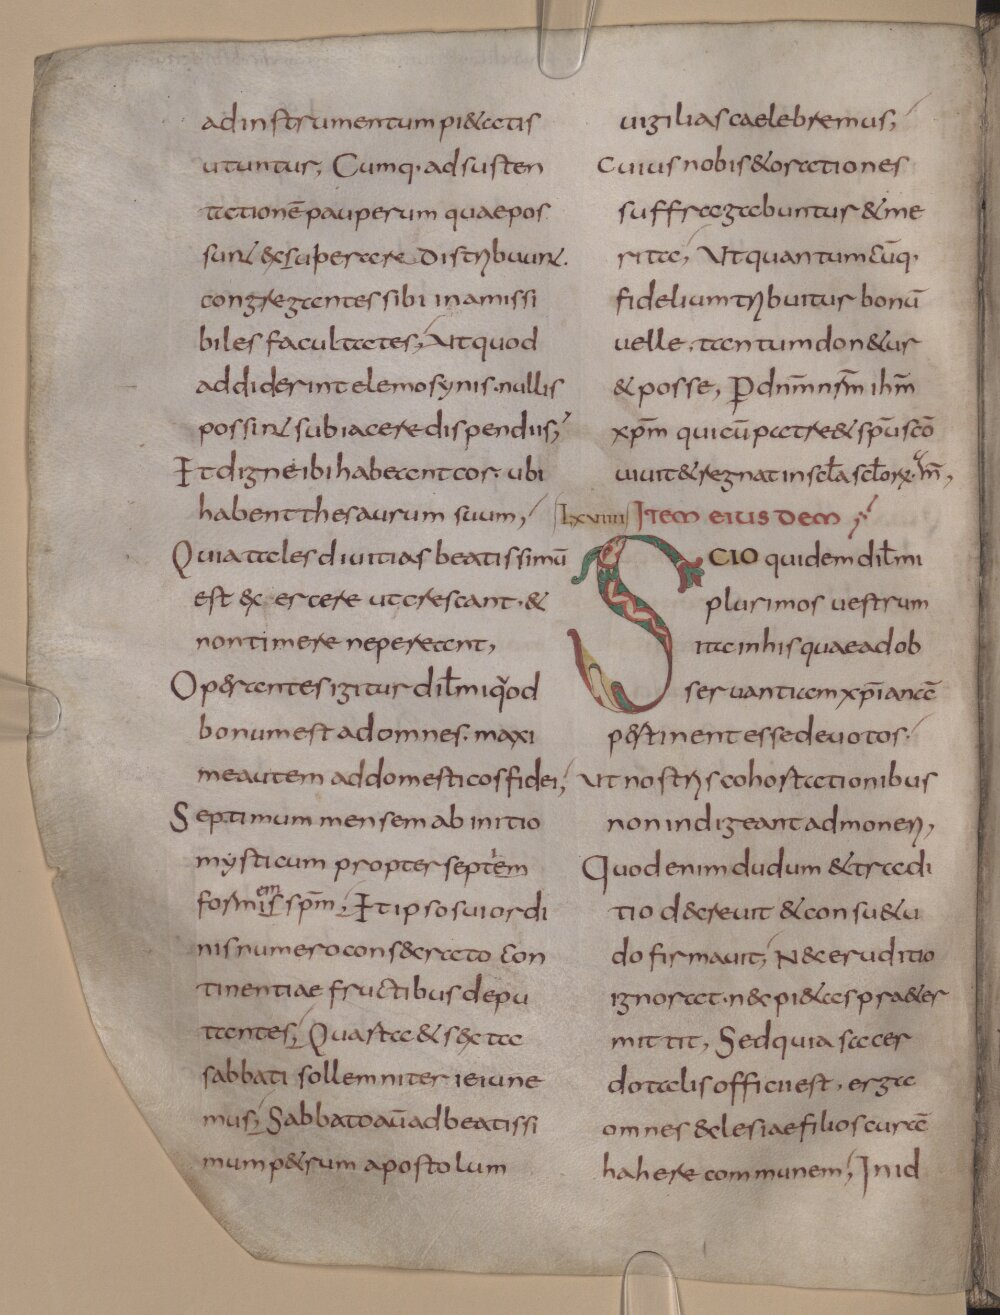 ad instrumentum pi&atis
utuntur; Cumq· ad susten
tationē pauperum quae pos
sunt exsuperare distribuunt·
congregantes sibi inamissi
biles facultates; Ut quod
addiderint elemosynis· nullis
possint subiacere dispendiis;
It digne ibi habeant cor· ubi
habent thesaurum suum;
Quia tales divitias beatissimū
est exercere ut crescant· &
non timere ne pereant;
Op&rantes igitur dil̄mi quod
bonum est ad omnes· maxi
me autem ad domesticos fidei;
Septimum mensem ab initio
mysticum propter septem
formem sp̄m; Et ipso sui ordi
nis numero consecrato con
tinentiae fructibus depu
tantes; Quarta & sexta
sabbati sollemniter ieiune
mus; Sabbato aū ad beatissi
mum p&rum apostolum
vigilias caelebremus;
Cuius nobis & orationes
suffragabuntur & me
rita; Ut quantumcūq·
fidelium tribuitur bonū
velle· tantum don&ur
& posse; P dn̄m nr̄m ih̄m
xp̄m qui cū patre & sp̄u scō
vivit & regnat in scl̄a scl̄orx· am̄;
LXVIIII Item eiusdem;
Scio quidem dil̄mi
plurimos vestrum
ita in his quae ad ob
servantiam xp̄ianā
p&rtinent esse devotos·
ut nostris cohortationibus
non indigeant admoneri;
Quod enim dudum & tradi
tio decrevit & consu&u
do firmavit; Nec eruditio
ignorat· nec pi&as pra&er
mittit; Sed quia sacer
dotalis officii est· erga
omnes &clesiae filios curā
habere communem; In id